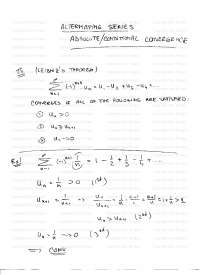 ALTERNATING SERIES
ABSOLUTE/CONDITIONAL CONVERGENCE
Th (LEIBNIZ'S THEOREM)
∞ Σ n=1 (-1)^{n+1} u_n = u_1 - u_2 + u_3 - u_4 + ...
CONVERGES IF ALL OF THE FOLLOWING ARE SATISFIED:
① u_n > 0
② u_n ≥ u_{n+1}
③ u_n → 0
Ex) ∞ Σ n=1 (-1)^{n+1} 1/n = 1 - 1/2 + 1/3 - 1/4 + ...
u_n = 1/n > 0 (1st)
u_{n+1} = 1/(n+1) => u_n/u_{n+1} = 1/n · (n+1)/1 = (n+1)/n = 1 + 1/n > 1
u_n > u_{n+1} (2nd)
u_n = 1/n → 0 (3rd)
=> CONV